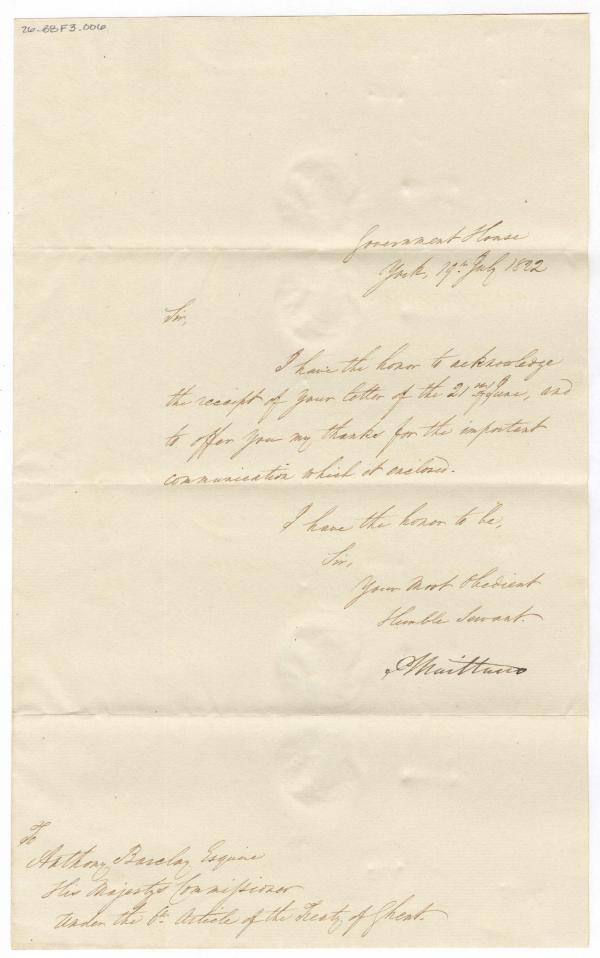 26-BBF3-006
Government House
York, 19th July 1822
Sir,
I have the honor to acknowledge
the receipt of your letter of the 21st of June, and
to offer you my thanks for the important
communication which it enclosed.
I have the honor to be,
Sir,
Your most Obedient
Humble Servant.
P Maitland
To
Anthony Barclay Esquire
His Majesty's Commissioner
Under the 6th Article of the Treaty of Ghent.